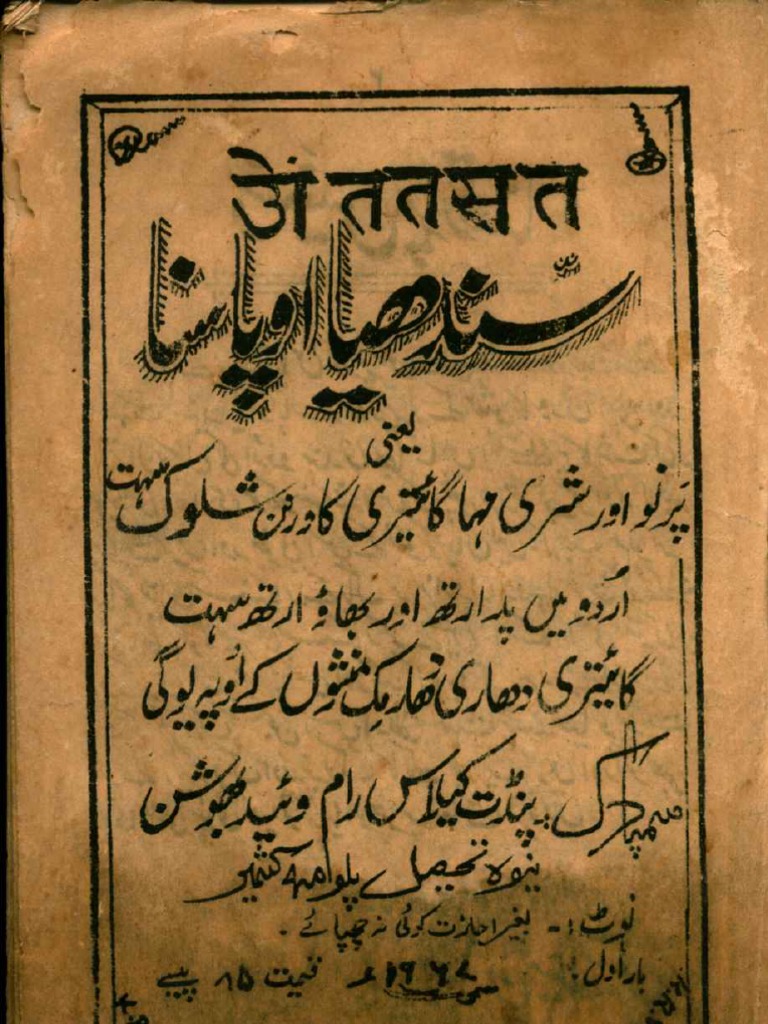 ओं ततसत
سندھیا اوپاسنا
یعنی
پرنو اور شری مہا گائتیری کا ورنن شلوک سہت
اُردو میں پدارتھ اور بھاؤ ارتھ سہت
گائیتری دھاری دھارمک منشوں کے اُوپہ یوگی
سمپادک :۔ پنڈت کیلاس رام وئید بھوشن
نیوہ تحصیل پلوامہ کشمیر
نوٹ :۔ بغیر اجازت کوئی نہ چھپائے ۔
بار اول : ۱۹۶۷ء قیمت ۸۵ پیسے